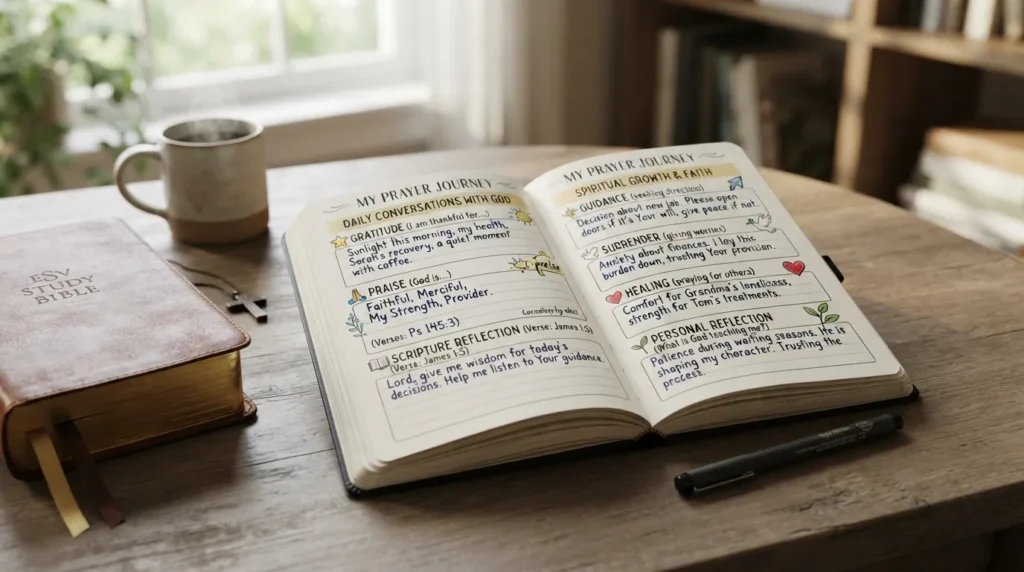 ESV
STUDY
BIBLE
MY PRAYER JOURNEY
DAILY CONVERSATIONS WITH GOD
GRATITUDE (I am thankful for...)
Sunlight this morning, my health,
Sarah's recovery, a quiet moment
with coffee.
praise
PRAISE (God is...)
Faithful, Merciful,
My Strength, Provider.
(Verse: Ps 145:3)
SCRIPTURE REFLECTION (Verse: James 1:5)
(Verse: James 1:5)
Lord, give me wisdom for today's
decisions. Help me listen to Your guidance.
MY PRAYER JOURNEY
SPIRITUAL GROWTH & FAITH
GUIDANCE (seeking direction)
Decision about new job. Please open
doors if it's Your will, give peace if not.
SURRENDER (giving worries)
Anxiety about finances. I lay this
burden down, trusting Your provision.
HEALING (praying for others)
Comfort for Grandma's loneliness,
strength for Tom's treatments.
PERSONAL REFLECTION
(What is God teaching me?)
Patience during waiting seasons. He is
shaping my character. Trusting the
process.